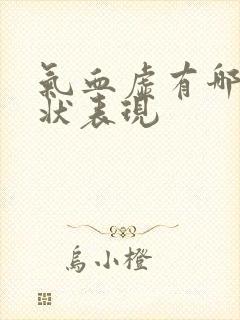 氣血虛有哪
狀表現
烏小橙